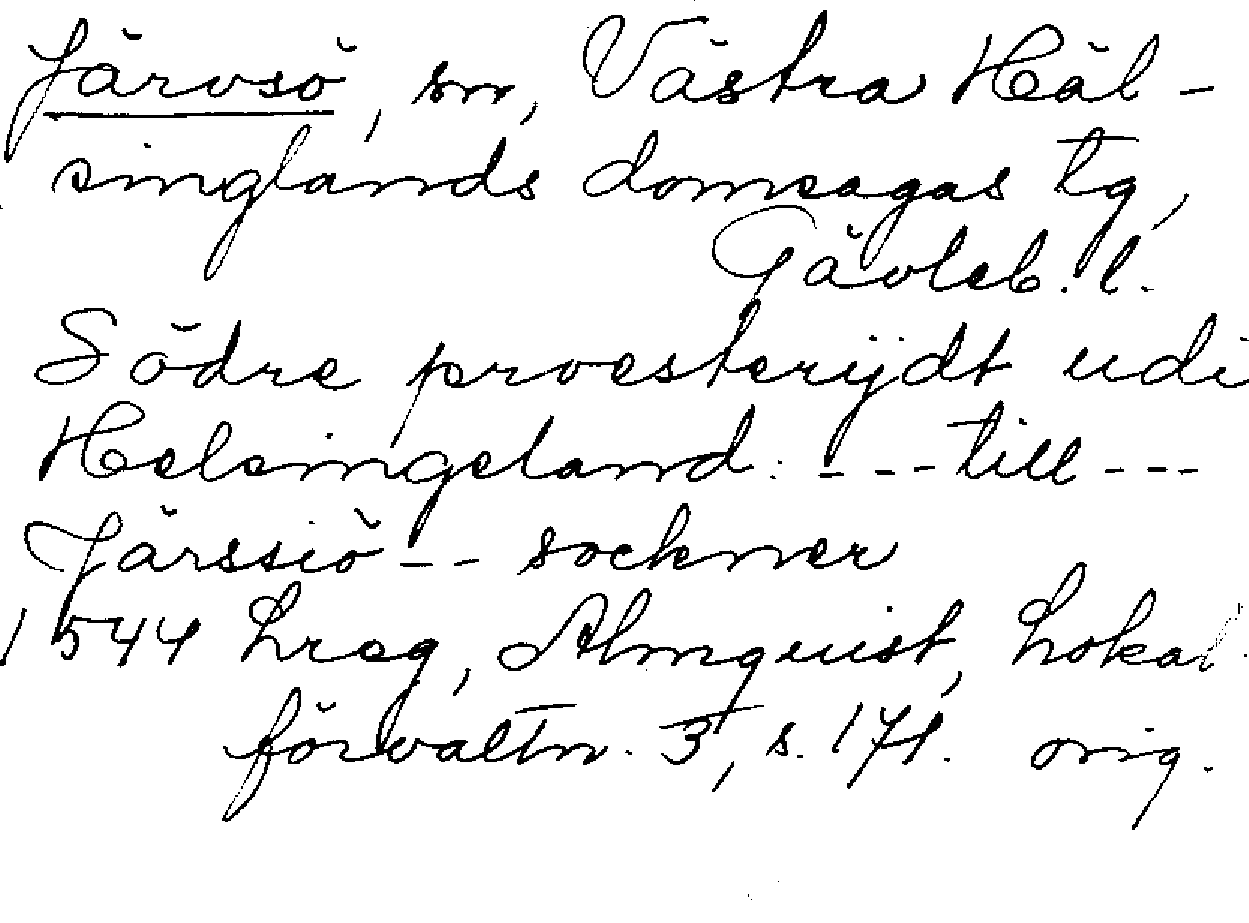 Järvsö, sn, Västra Häl-
singlands domsagas tg,
Gävleb. l.
Södre proesterijdt udi
Helsingeland: --- till ---
Järssiö -- sockner
1544 Lreg, Almquist, Lokal
förvaltn. 3, s. 171. orig.